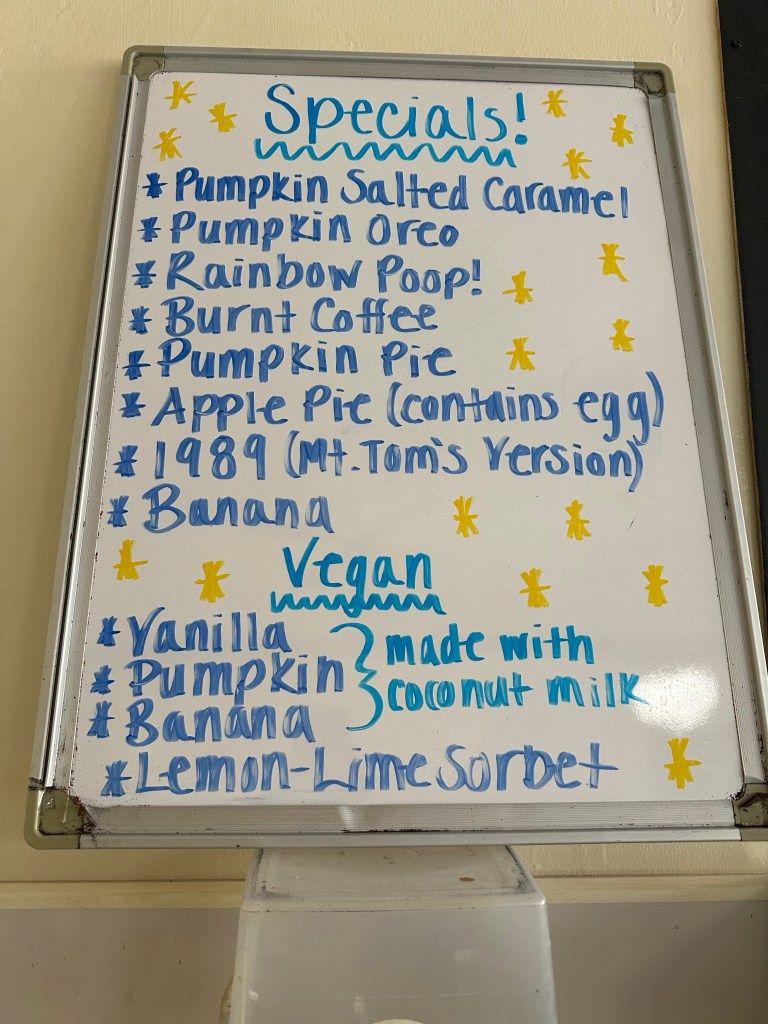 Specials!
* Pumpkin Salted Caramel
* Pumpkin Oreo
* Rainbow Poop!
* Burnt Coffee
* Pumpkin Pie
* Apple Pie (contains egg)
* 1989 (Mt. Tom's Version)
* Banana
Vegan
* Vanilla
* Pumpkin
* Banana
} made with
coconut milk
* Lemon-Lime Sorbet